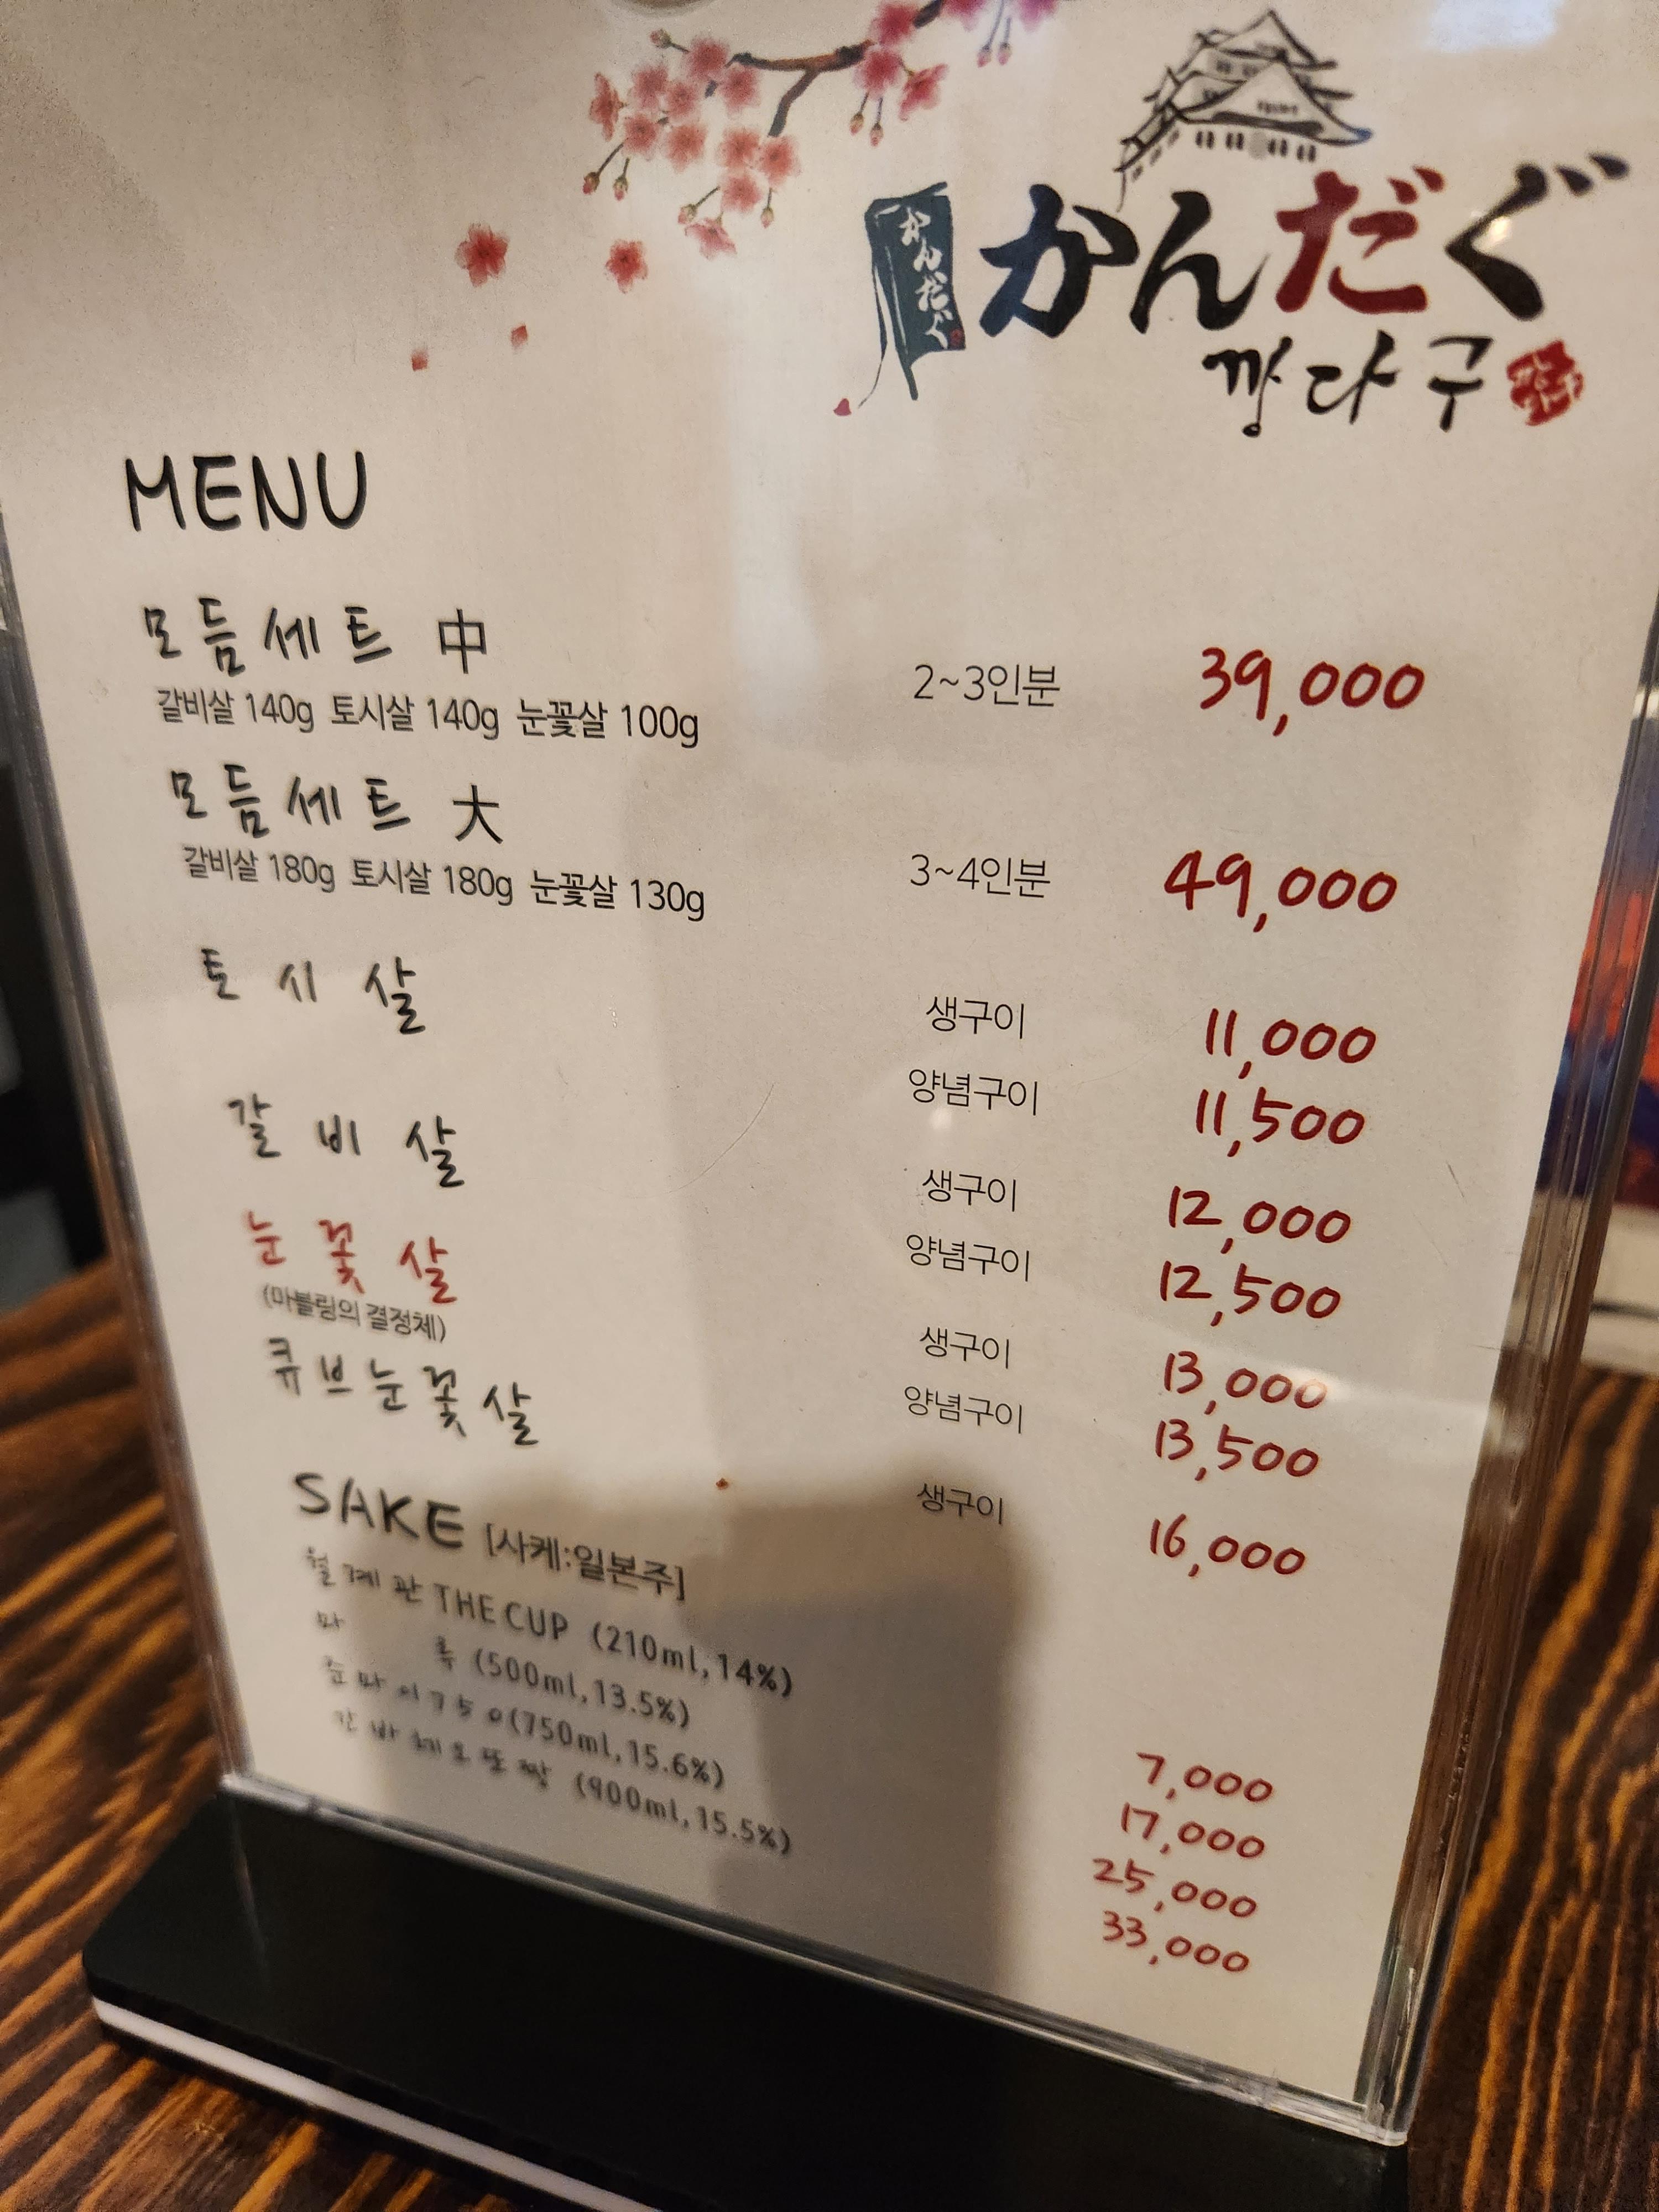 かんだぐ
かんだぐ
깡다구
MENU
모듬세트 中
2~3인분 39,000
갈비살 140g 토시살 140g 눈꽃살 100g
모듬세트 大
3~4인분 49,000
갈비살 180g 토시살 180g 눈꽃살 130g
토시살
생구이 11,000
양념구이 11,500
갈비살
생구이 12,000
양념구이 12,500
눈꽃살
(마블링의 결정체)
생구이 13,000
양념구이 13,500
큐브눈꽃살
생구이 16,000
SAKE [사케:일본주]
월계관 THE CUP (210ml,14%) 7,000
마루 (500ml,13.5%) 17,000
준마이750(750ml,15.6%) 25,000
간바레오또짱 (900ml,15.5%) 33,000